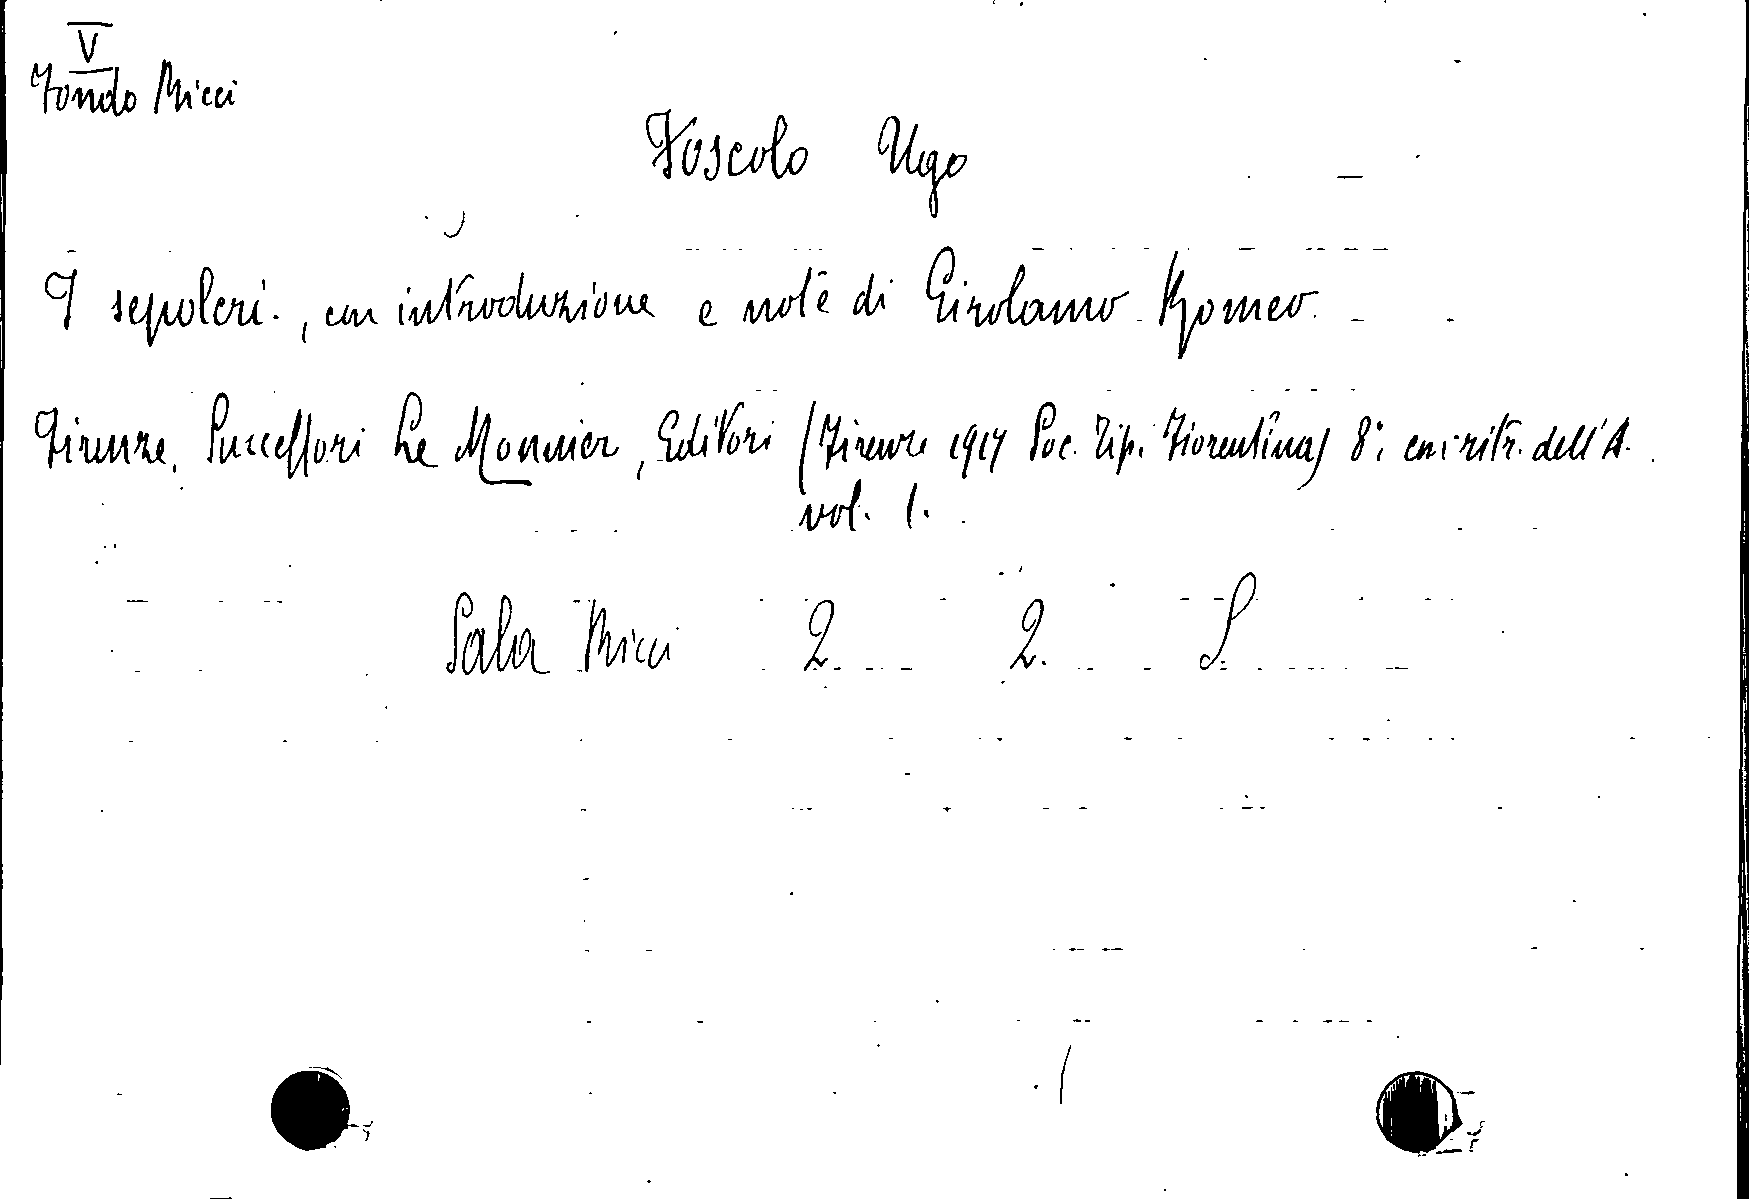 V
Fondo Ricci
Foscolo Ugo
I sepolcri., con introduzione e note di Girolamo Romeo.
Firenze, Successori Le Monnier, Editori (Firenze 1917 Soc. Tip. Fiorentina) 8°; con ritr. dell'A.
vol. 1.
Sala Ricci 2. 2. S.